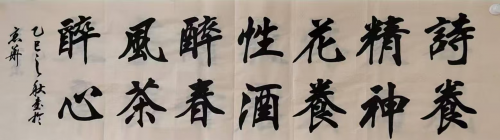 詩養
精神
花養
性酒
醉春
風茶
醉心
乙巳之秋書於
京華